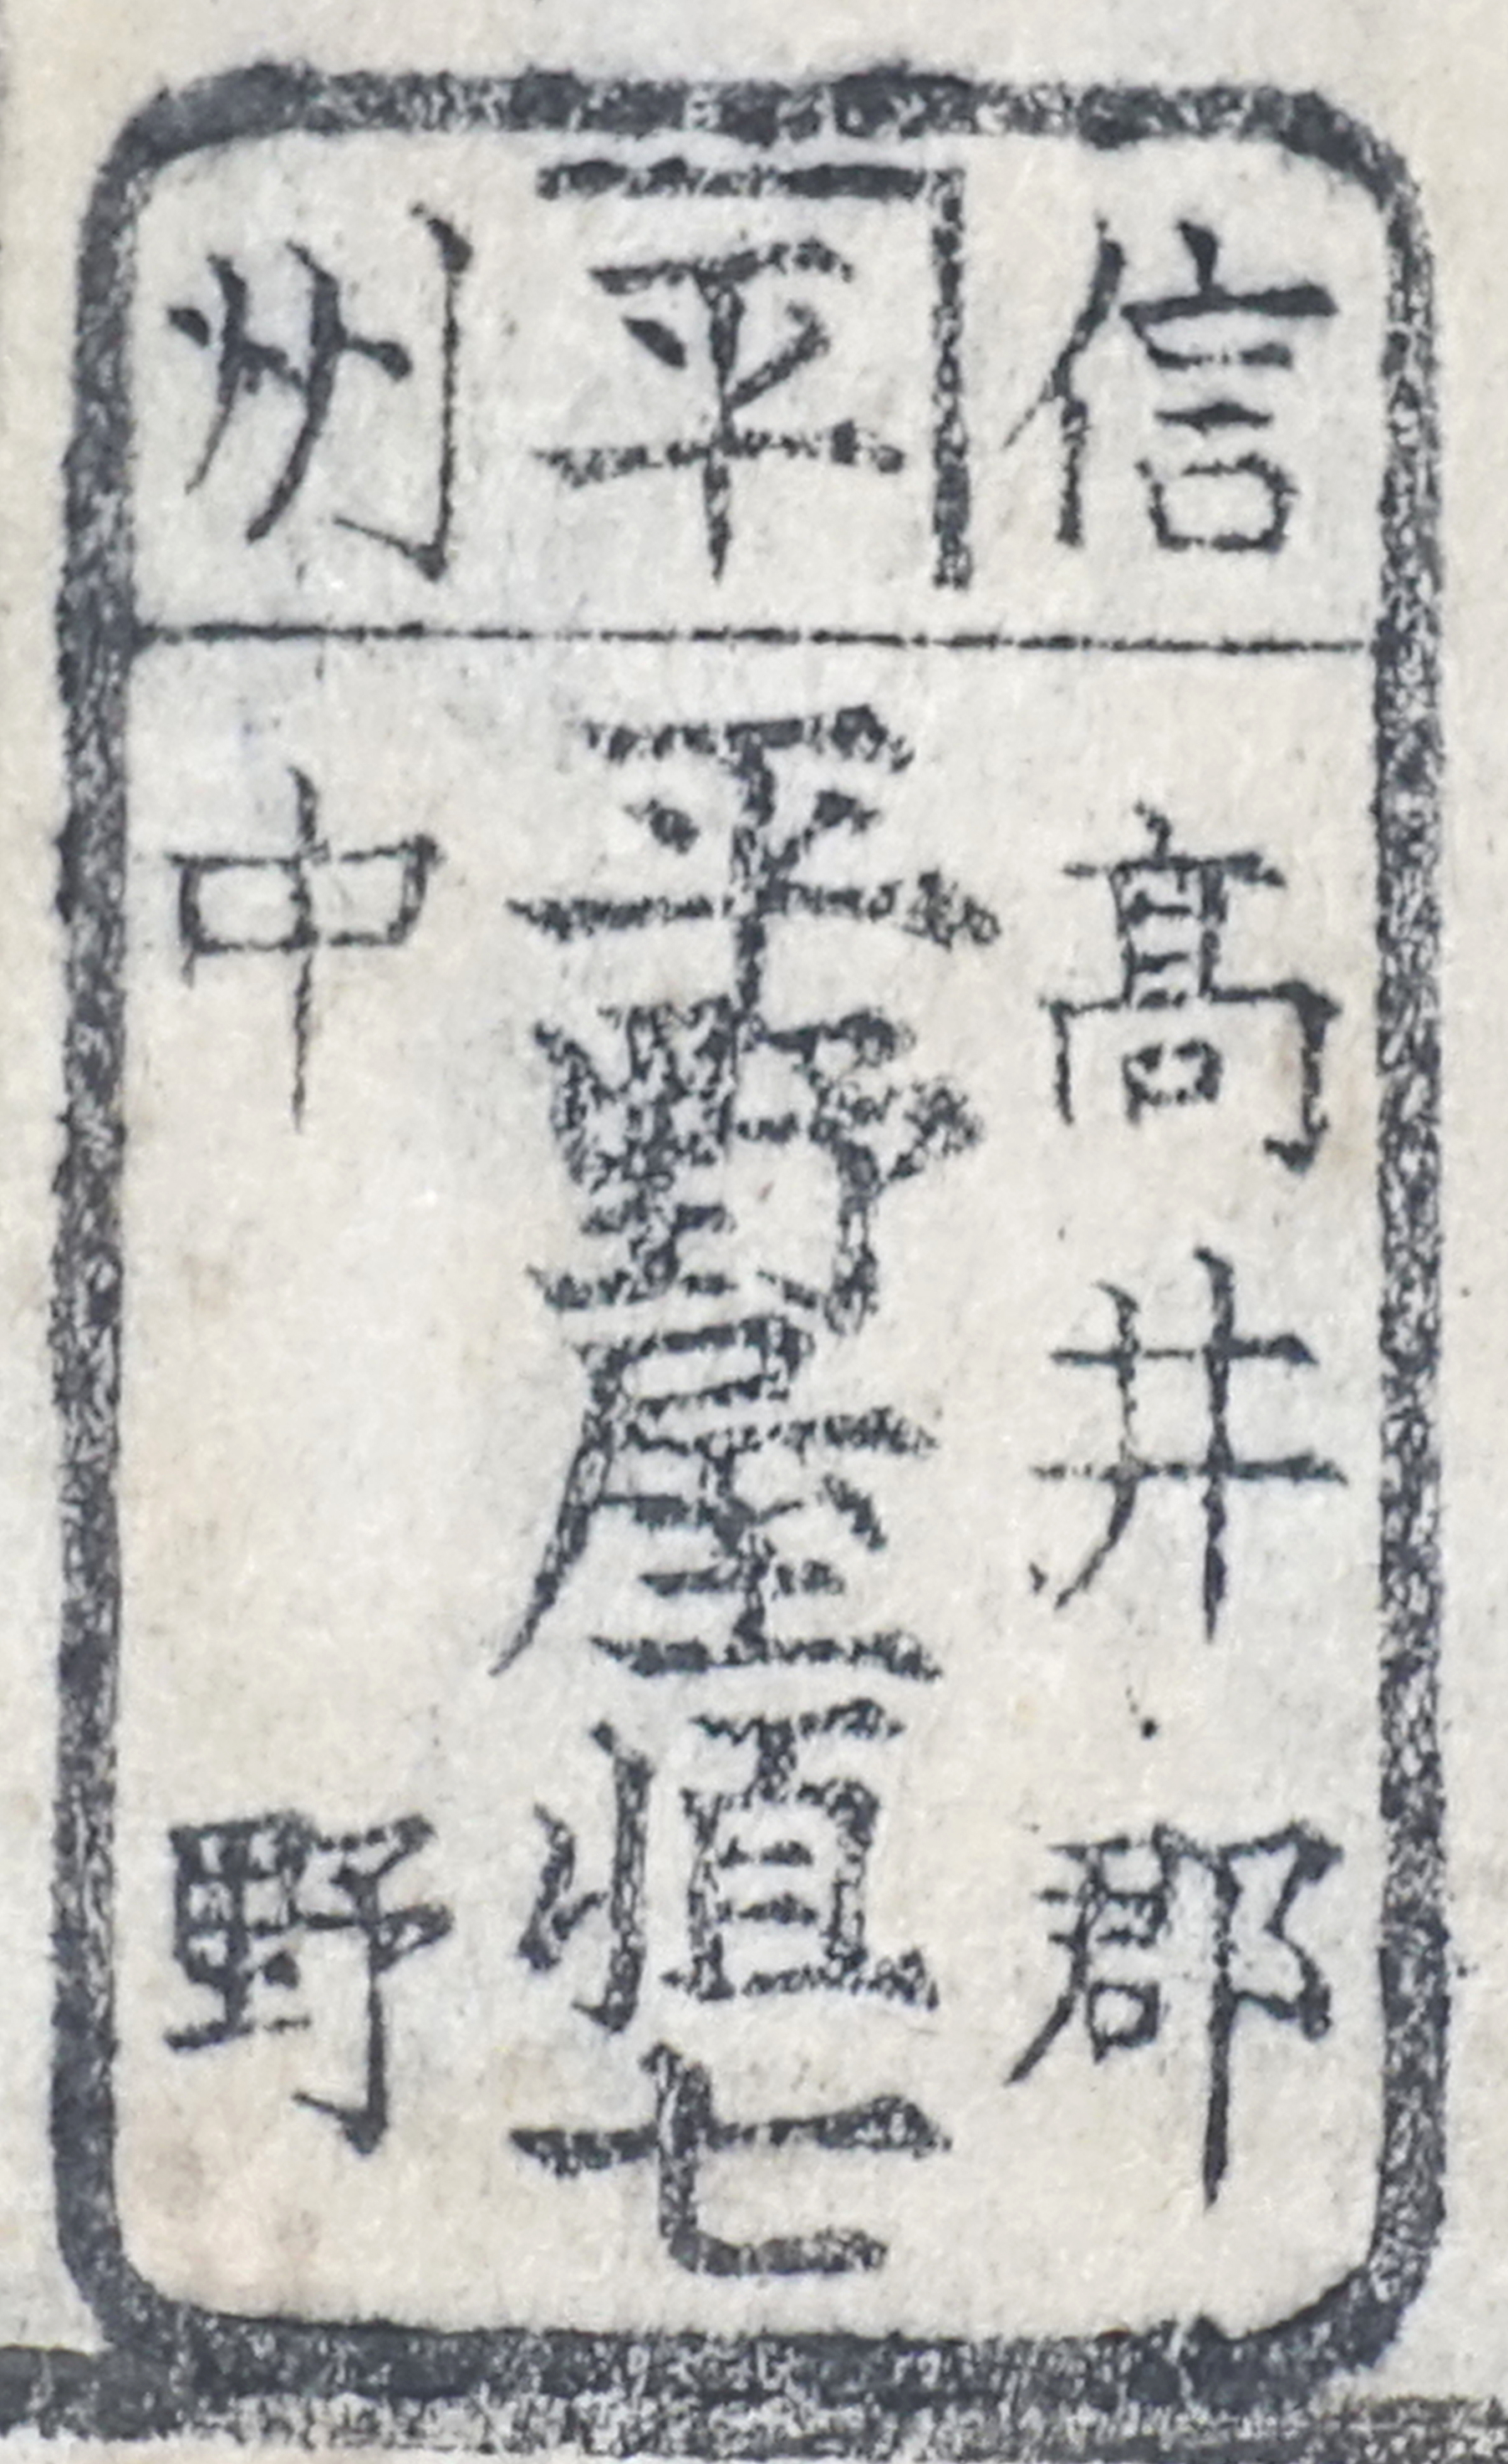 信州
平
高井郡
平野屋恒七
中野